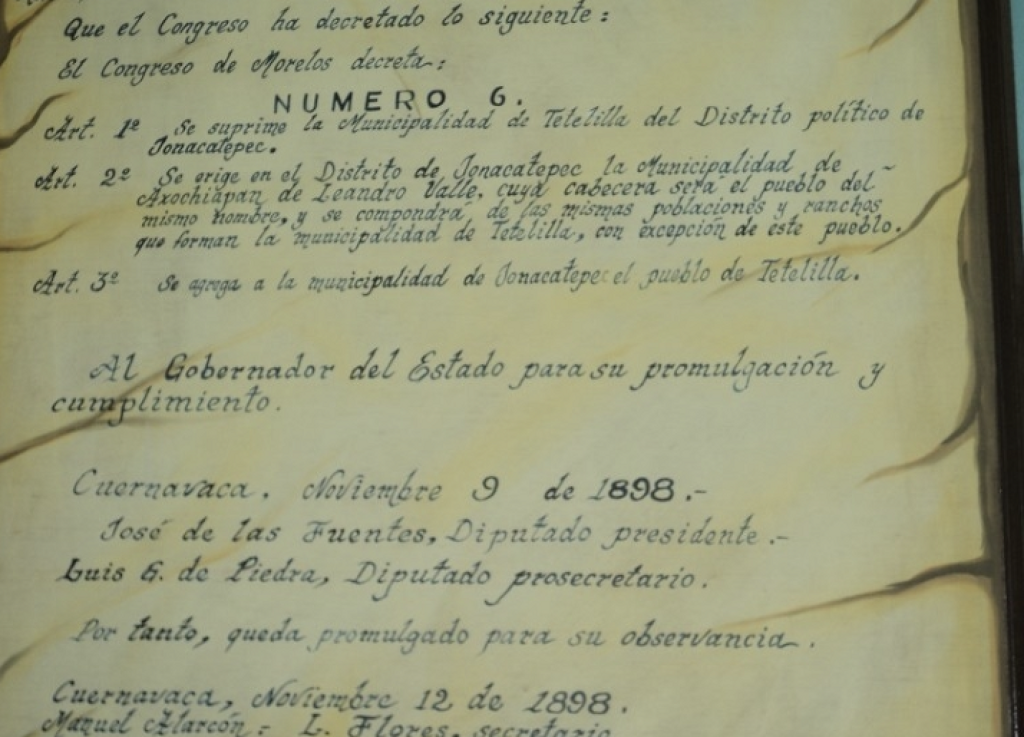 Que el Congreso ha decretado lo siguiente:
El Congreso de Morelos decreta:
NUMERO 6.
Art. 1º Se suprime la Municipalidad de Tetelilla del Distrito político de
Jonacatepec.
Art. 2º Se erige en el Distrito de Jonacatepec la Municipalidad de
Axochiapan de Leandro Valle, cuya cabecera será el pueblo del
mismo nombre, y se compondrá de las mismas poblaciones y ranchos
que forman la municipalidad de Tetelilla, con excepción de este pueblo.
Art. 3º Se agrega a la municipalidad de Jonacatepec el pueblo de Tetelilla.
Al Gobernador del Estado para su promulgación y
cumplimiento.
Cuernavaca, Noviembre 9 de 1898.-
José de las Fuentes, Diputado presidente.-
Luis G. de Piedra, Diputado prosecretario.
Por tanto, queda promulgado para su observancia.
Cuernavaca, Noviembre 12 de 1898.
Manuel Alarcón.- L. Flores, secretario